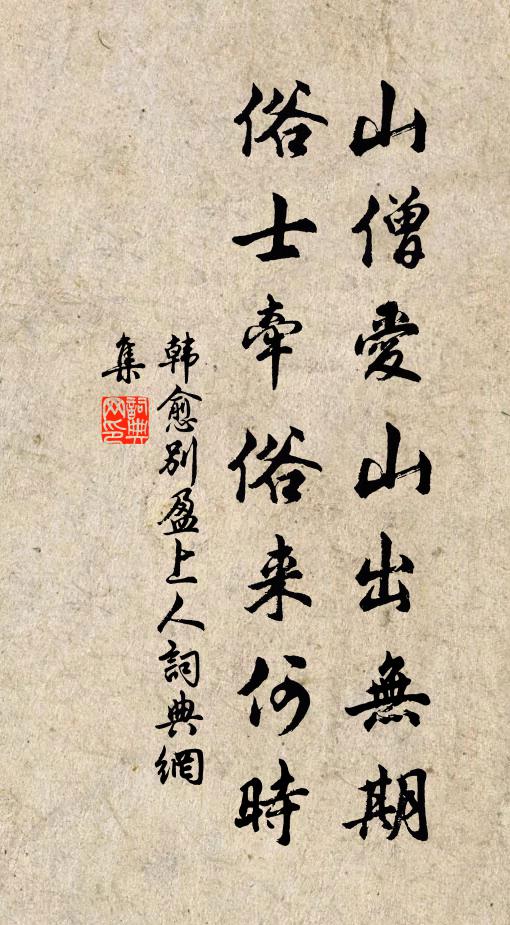 山僧愛山出無期
俗士牽俗来何時
韩愈别盈上人詞典網
集
詞典
网印